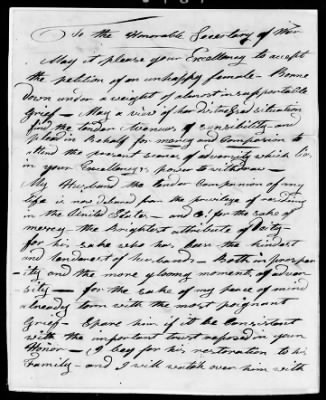 To the Honorable Secretary of War
May it please your Excellency to accept
the petition of an unhappy female – Borne
down under a weight of almost insupportable
Grief – May a view of her distressed situation
find the tender Avenues of sensibility and
plead in Behalf for mercy and Compassion to
attend the present scenes of adversity which lies
in your Excellencys power to withdraw –
My Husband the tender Companion of my
life is now debared from the privilege of residing
in the United States – and O! for the sake of
mercy the Brightest attribute of Deity –
for his sake who has been the kindest
and tenderest of husbands – Both in prosper
ity and the more gloomy moments of adver
sity – for the sake of my peace of mind
already torn with the most poignant
Grief – Spare him if it be Consistant
with the important trust reposed in your
Honor – I beg for his restoration to his
Family – and I will watch over him with